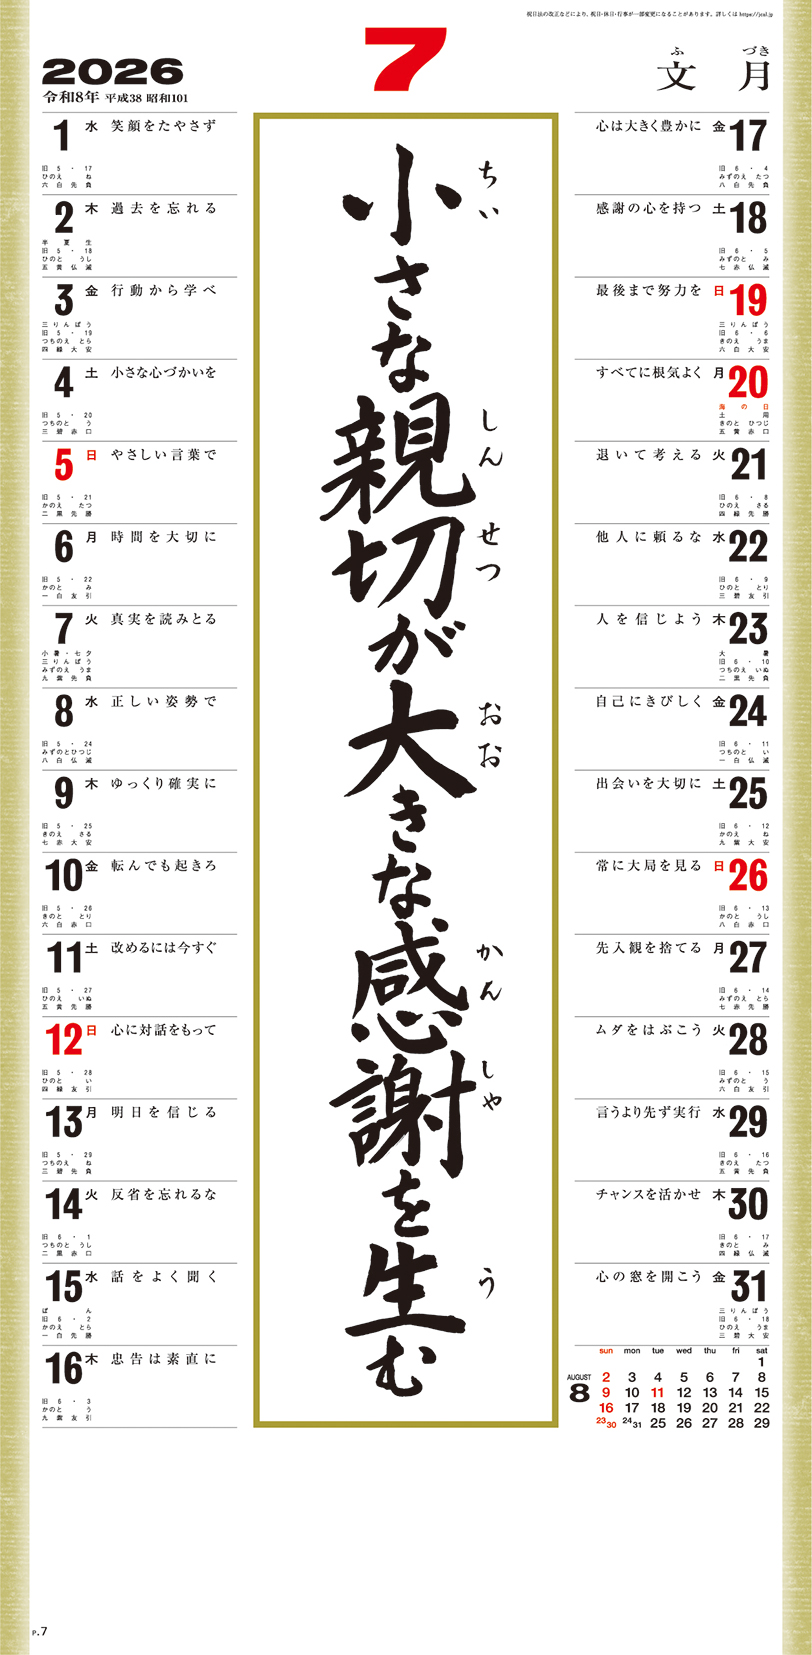 祝日法の改正などにより、祝日・休日・行事が一部変更になることがあります。詳しくは https://jcal.jp
2026
令和8年 平成38 昭和101
7
ふ づき
文 月
1 水 笑顔をたやさず
旧 5 ・ 17
ひのえ ね
六白先負
2 木 過去を忘れる
半夏生
旧 5 ・ 18
ひのと うし
五黄仏滅
3 金 行動から学べ
三りんぼう
旧 5 ・ 19
つちのえ とら
四緑大安
4 土 小さな心づかいを
旧 5 ・ 20
つちのと う
三碧赤口
5 日 やさしい言葉で
旧 5 ・ 21
かのえ たつ
二黒先勝
6 月 時間を大切に
旧 5 ・ 22
かのと み
一白友引
7 火 真実を読みとる
小暑・七夕
三りんぼう
みずのえ うま
九紫先負
8 水 正しい姿勢で
旧 5 ・ 24
みずのとひつじ
八白仏滅
9 木 ゆっくり確実に
旧 5 ・ 25
きのえ さる
七赤大安
10 金 転んでも起きろ
旧 5 ・ 26
きのと とり
六白赤口
11 土 改めるには今すぐ
旧 5 ・ 27
ひのえ いぬ
五黄先勝
12 日 心に対話をもって
旧 5 ・ 28
ひのと い
四緑友引
13 月 明日を信じる
旧 5 ・ 29
つちのえ ね
三碧先負
14 火 反省を忘れるな
旧 6 ・ 1
つちのと うし
二黒赤口
15 水 話をよく聞く
ぼん
旧 6 ・ 2
かのえ とら
一白先勝
16 木 忠告は素直に
旧 6 ・ 3
かのと う
九紫友引
小さな親切が大きな感謝を生む
ちい しん せつ おお かん しゃ う
心は大きく豊かに 金 17
旧 6 ・ 4
みずのえ たつ
八白先負
感謝の心を持つ 土 18
旧 6 ・ 5
みずのと み
七赤仏滅
最後まで努力を 日 19
三りんぼう
旧 6 ・ 6
きのえ うま
六白大安
すべてに根気よく 月 20
海の日
土用
きのと ひつじ
五黄赤口
退いて考える 火 21
旧 6 ・ 8
ひのえ さる
四緑先勝
他人に頼るな 水 22
旧 6 ・ 9
ひのと とり
三碧友引
人を信じよう 木 23
大暑
旧 6 ・ 10
つちのえ いぬ
二黒先負
自己にきびしく 金 24
旧 6 ・ 11
つちのと い
一白仏滅
出会いを大切に 土 25
旧 6 ・ 12
かのえ ね
九紫大安
常に大局を見る 日 26
旧 6 ・ 13
かのと うし
八白赤口
先入観を捨てる 月 27
旧 6 ・ 14
みずのえ とら
七赤先勝
ムダをはぶこう 火 28
旧 6 ・ 15
みずのと う
六白友引
言うより先ず実行 水 29
旧 6 ・ 16
きのえ たつ
五黄先負
チャンスを活かせ 木 30
旧 6 ・ 17
きのと み
四緑仏滅
心の窓を開こう 金 31
三りんぼう
旧 6 ・ 18
ひのえ うま
三碧大安
AUGUST
8
sun mon tue wed thu fri sat
1
2 3 4 5 6 7 8
9 10 11 12 13 14 15
16 17 18 19 20 21 22
23/30 24/31 25 26 27 28 29
P.7